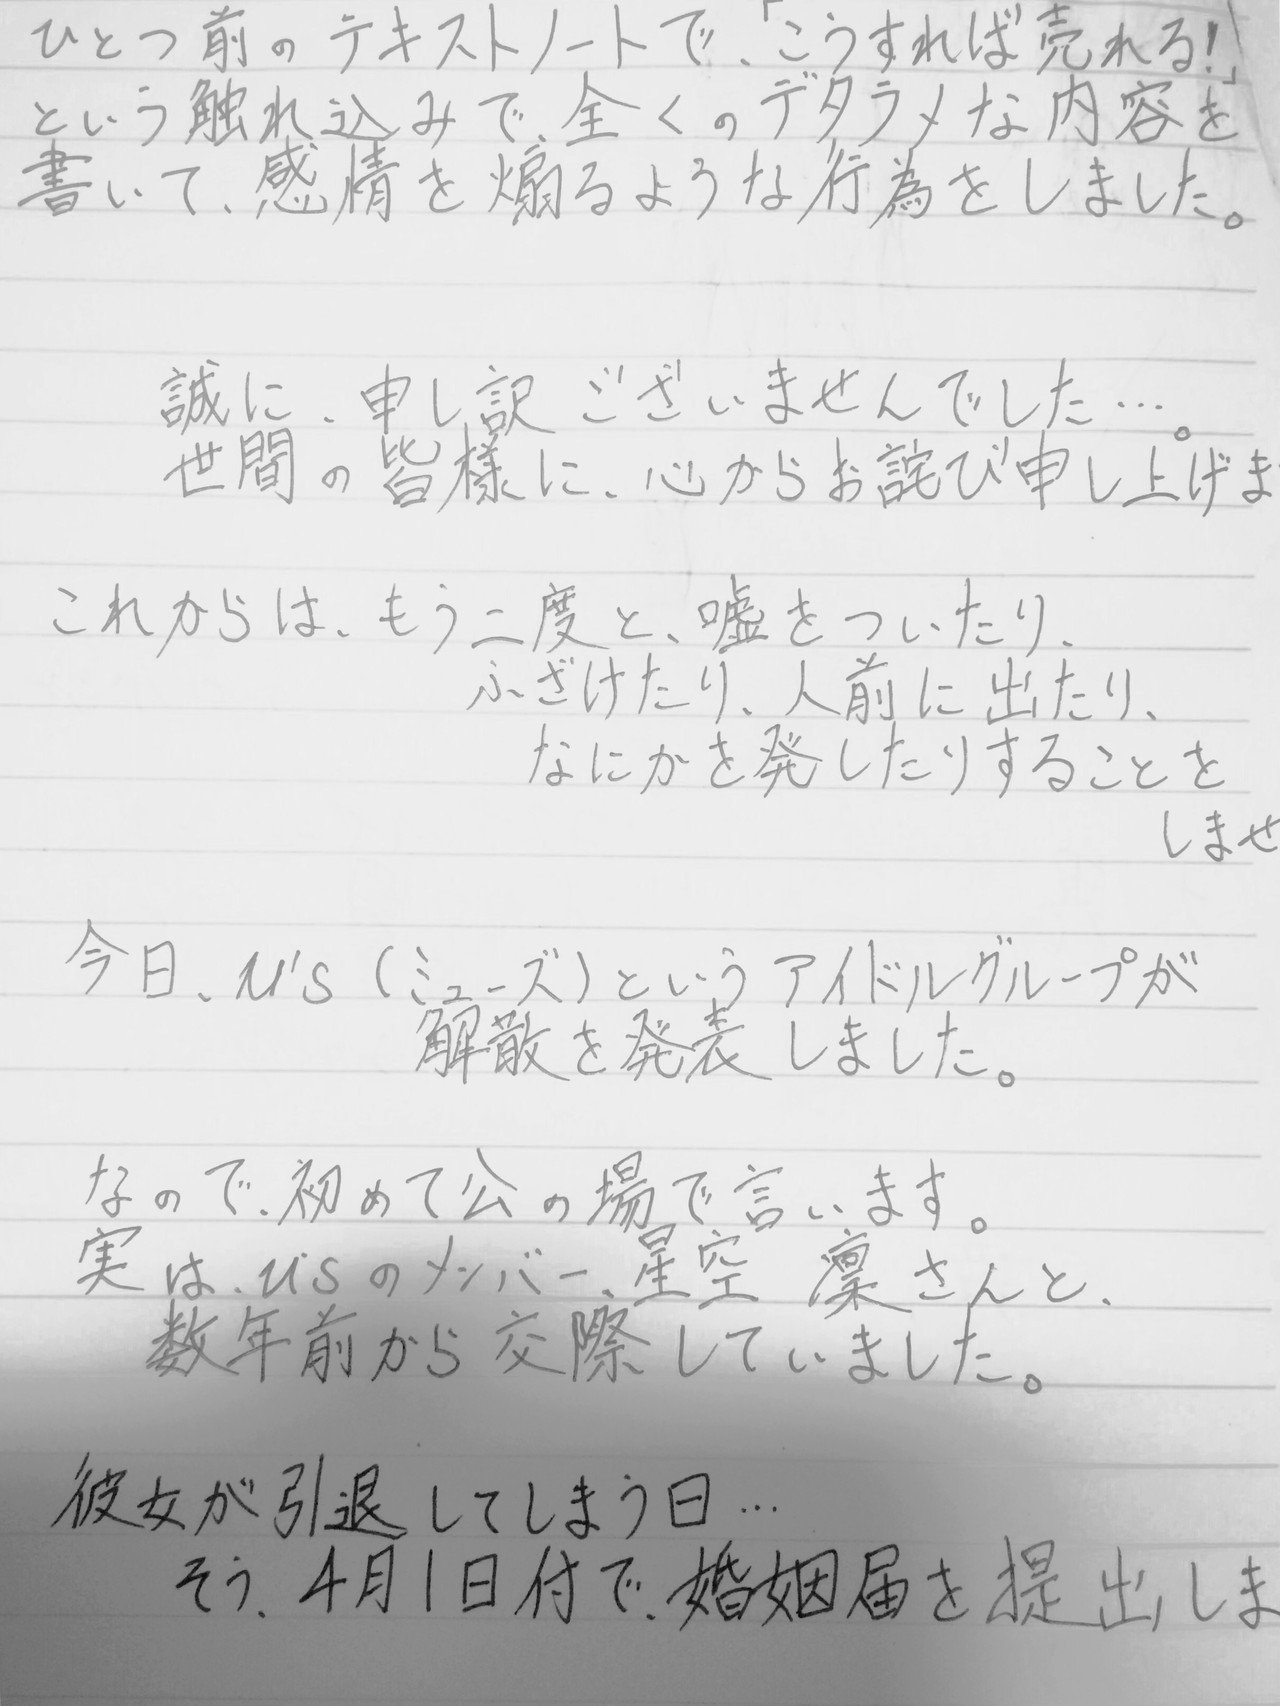 ひとつ前のテキストノートで、「こうすれば売れる!」
という触れ込みで、全くのデタラメな内容を
書いて、感情を煽るような行為をしました。
誠に、申し訳ございませんでした…。
世間の皆様に、心からお詫び申し上げま
これからは、もう二度と、嘘をついたり、
ふざけたり、人前に出たり、
なにかを発したりすることを
しませ
今日、μ's(ミューズ)というアイドルグループが
解散を発表しました。
なので、初めて公の場で言います。
実は、μ'sのメンバー、星空 凛さんと、
数年前から交際していました。
彼女が引退してしまう日…
そう、4月1日付で、婚姻届を提出しま